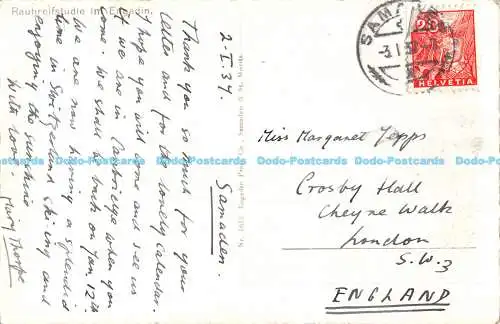 Rauhreifstudie im Engadin.
2-I-37.
Samaden.
Thank you so much for your
letter and for the lovely calendar.
I hope you will come and see us
if we are in Cambridge when you
come. We shall be back on Jan 12th
We are now having a splendid
time in Switzerland skiing and
enjoying the sunshine
With love
Mary Thorpe
Nr. 1612
SAMADEN
3.I.37
25
HELVETIA
Miss Margaret Jepps
Crosby Hall
Cheyne Walk
London
S.W.3
ENGLAND
Dodo-Postcards Dodo-Postcards Dodo-Postcards Dodo-Postcards Dodo-Postcards